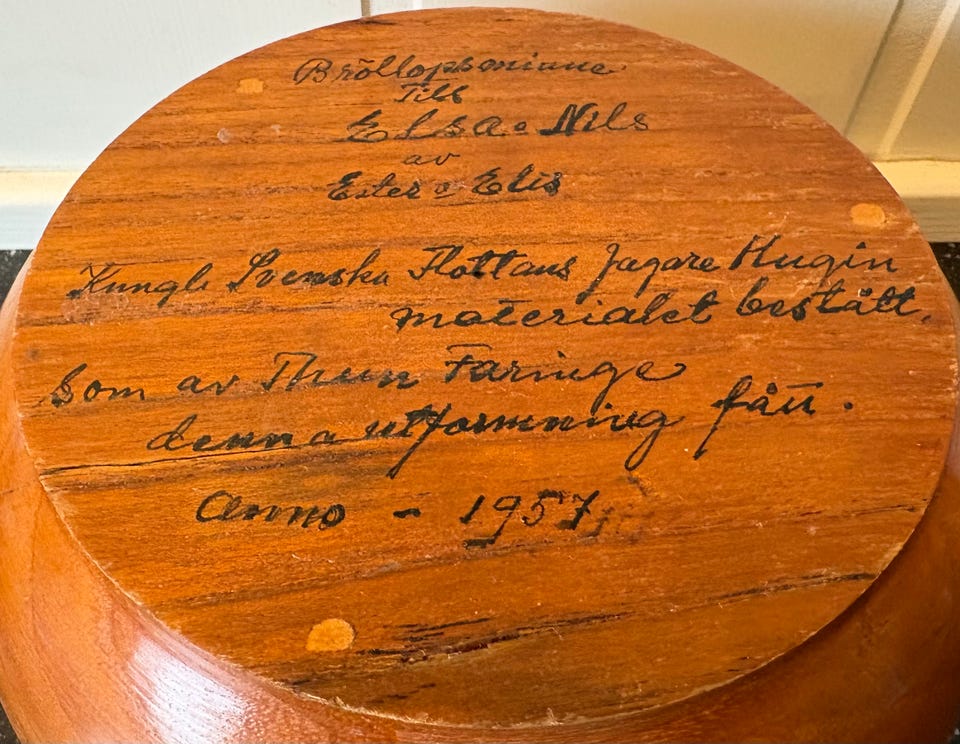 Bröllopsminne
Till
Elsa o Nils
av
Ester o Elis
Kungl. Svenska Flottans Jagare Hugin
materialet bestått,
som av Thun Faringe
denna utformning fått.
Anno - 1957